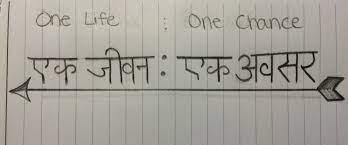 One Life : One Chance
एक जीवन : एक अवसर